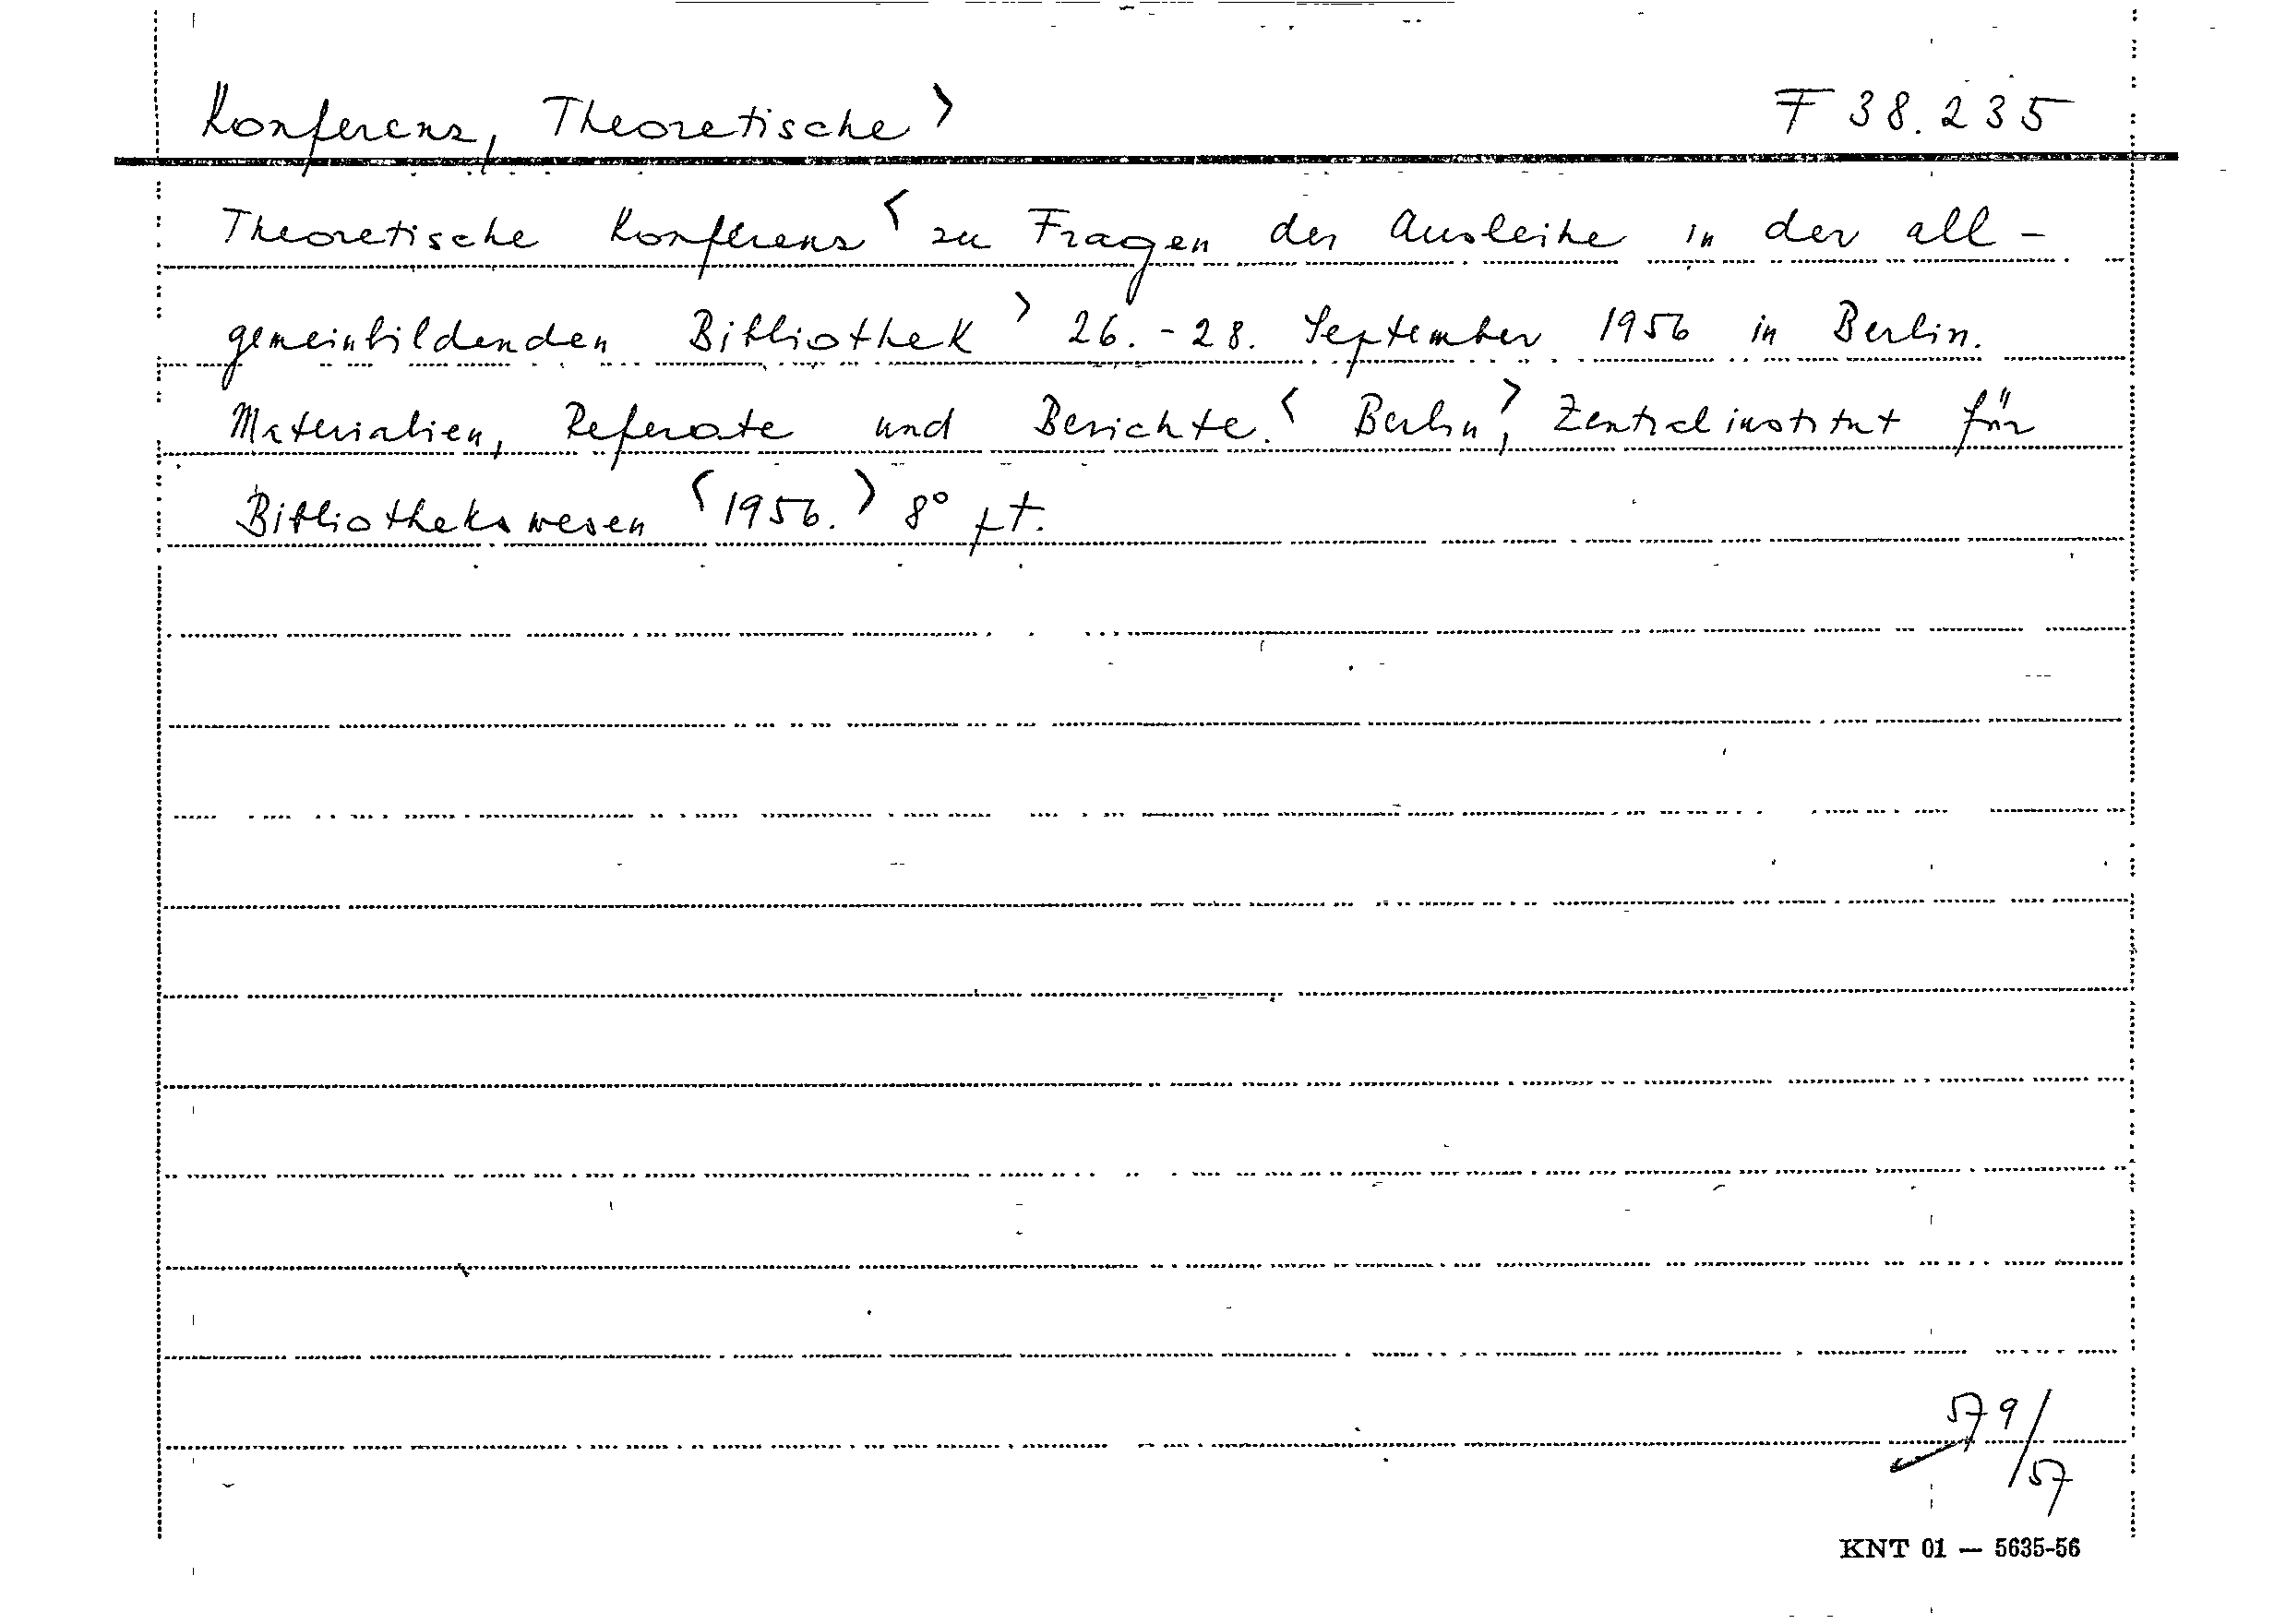 Konferenz, Theoretische > F 38.235
Theoretische Konferenz < zu Fragen der Ausleihe in der all-
gemeinbildenden Bibliothek > 26.-28. September 1956 in Berlin.
Materialien, Referate und Berichte. < Berlin >, Zentralinstitut für
Bibliothekswesen < 1956. > 8°
579/57
KNT 01 — 5635-56